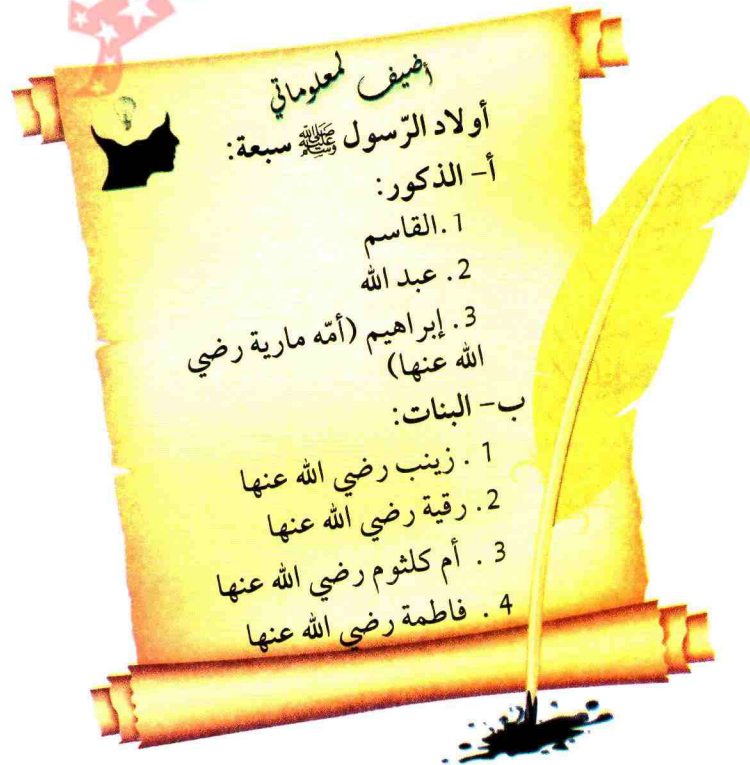 أضيف لمعلوماتي
أولاد الرّسول ﷺ سبعة:
أ- الذكور:
1. القاسم
2. عبد الله
3. إبراهيم (أمّه مارية رضي
الله عنها)
ب- البنات:
1. زينب رضي الله عنها
2. رقية رضي الله عنها
3. أم كلثوم رضي الله عنها
4. فاطمة رضي الله عنها